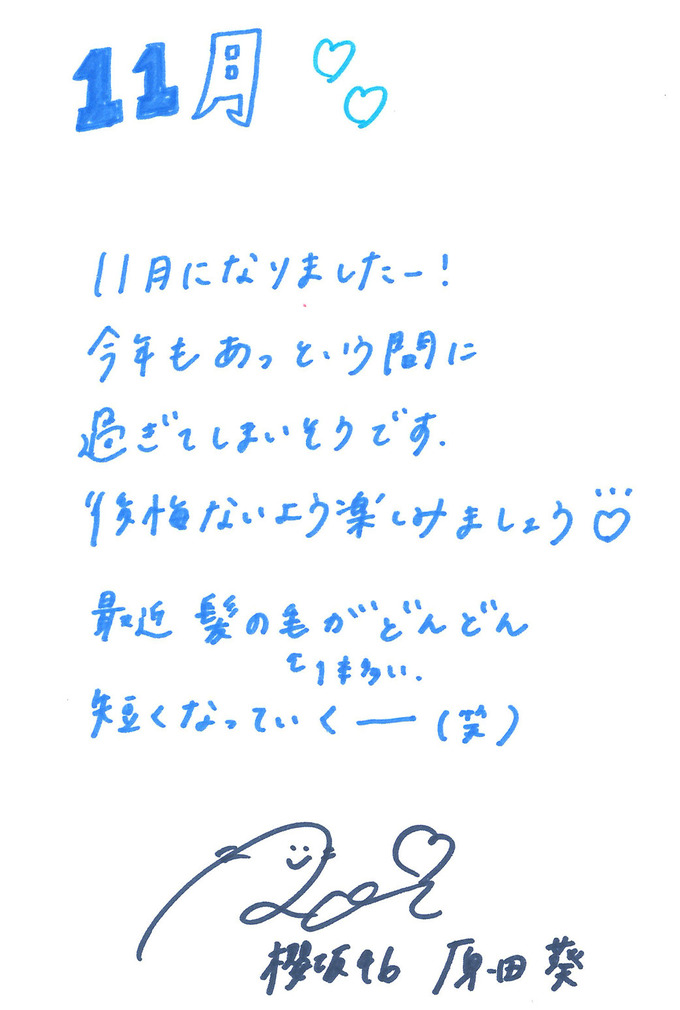 11月
11月になりましたー!
今年もあっという間に
過ぎてしまいそうです.
後悔ないよう楽しみましょう
最近 髪の毛がどんどん
短くなっていくー(笑)
Aoi
櫻坂46 原田 葵